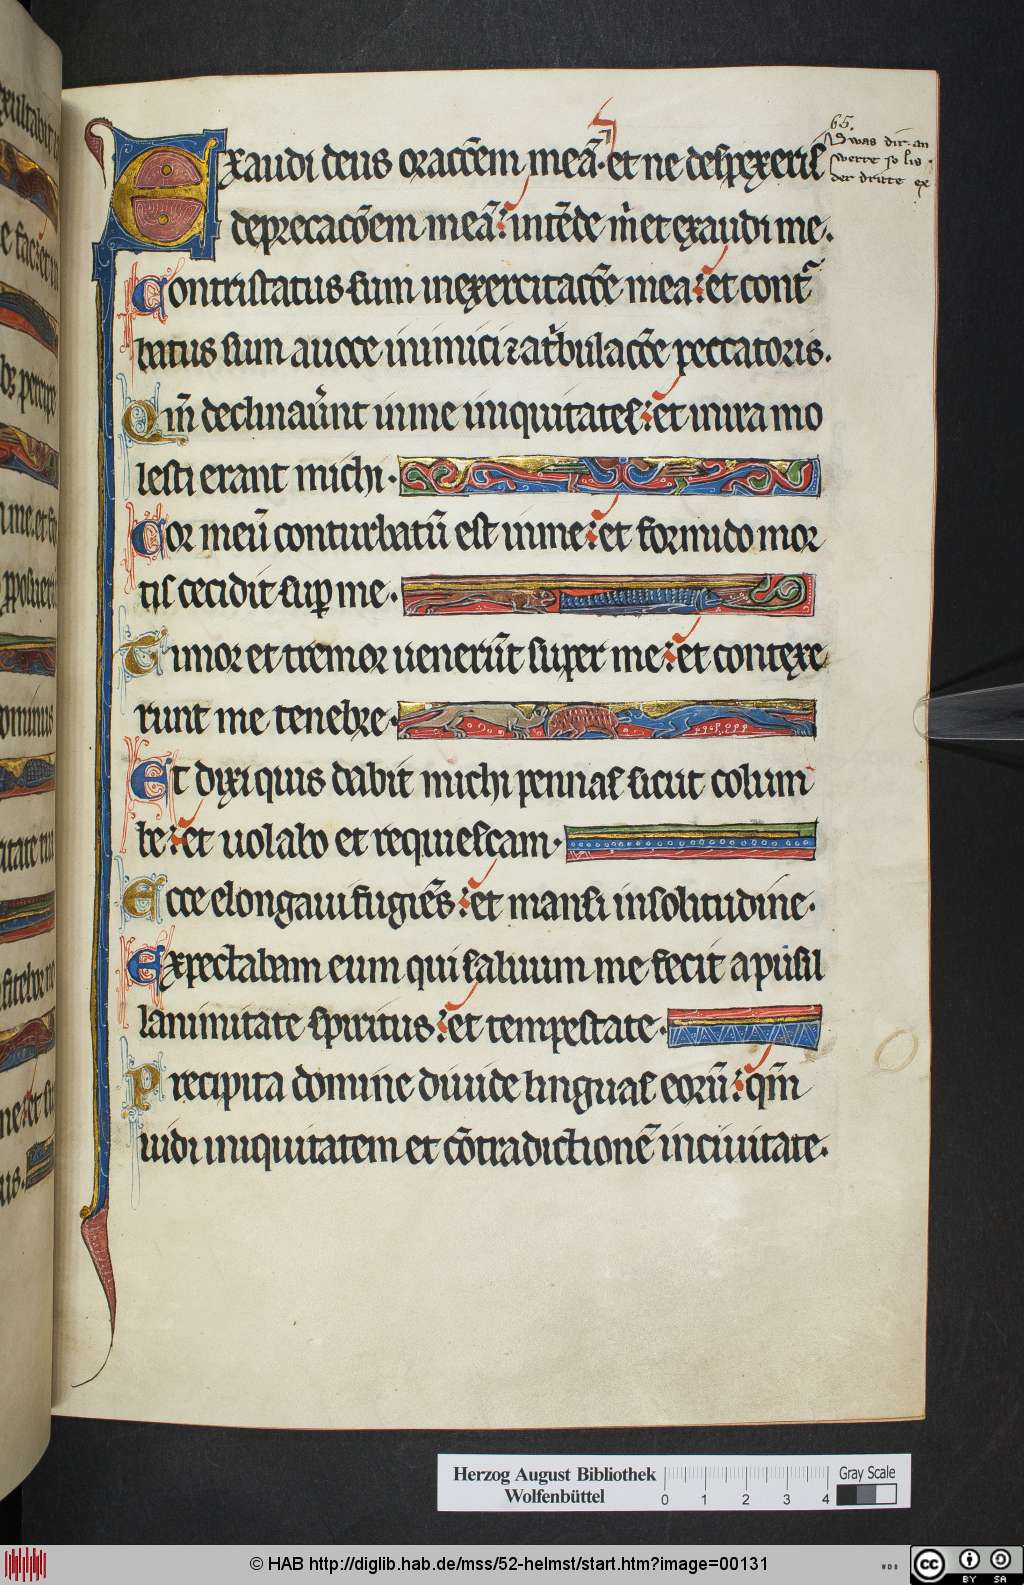 65.
was dir an
werte so lis
der dritte ex
Exaudi deus orac̄cēm meā. et ne despexeris
deprecac̄oēm meā: intēde m̍ et exaudi me.
Contristatus sum in exercitac̄ōe mea: et cont͛
batus sum a uoce inimici ⁊ a tͥbulac̄ōe peccatoris.
Qm̄ declinaueͬnt in me iniquitates: et in ira mo
lesti erant michi.
Cor meū conturbatū est in me: et formido mor
tis cecidit suꝑ me.
Timor et tremor uenerūt super me: et contexe
runt me tenebre.
Et dixi quis dabit michi pennas sicut colum
be: et uolabo et requiescam.
Ecce elongaui fugiēs: et mansi in solitudine.
Expectabam eum qui saluum me fecit a pusil
lanimitate spiritus: et tempestate.
Precipita domine diuide linguas eorū: qm̄
uidi iniquitatem et cōtradictionē in ciuitate.
Herzog August Bibliothek
Wolfenbüttel
0 1 2 3 4
Gray Scale
© HAB http://diglib.hab.de/mss/52-helmst/start.htm?image=00131
WDB
cc BY SA